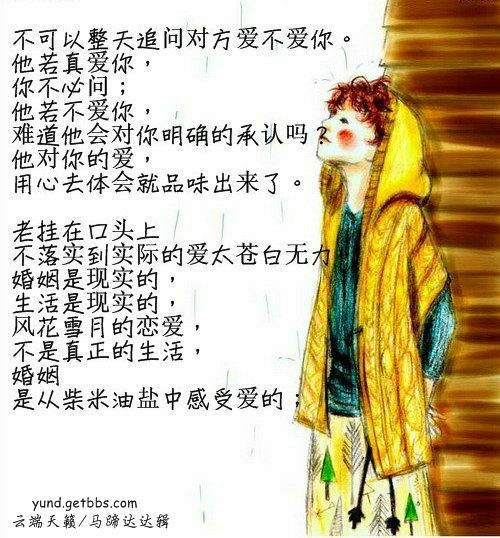 不可以整天追问对方爱不爱你。
他若真爱你，
你不必问；
他若不爱你，
难道他会对你明确的承认吗？
他对你的爱，
用心去体会就品味出来了。
老挂在口头上
不落实到实际的爱太苍白无力
婚姻是现实的，
生活是现实的，
风花雪月的恋爱，
不是真正的生活，
婚姻
是从柴米油盐中感受爱的；
yund.getbbs.com
云端天籁/马蹄达达辑